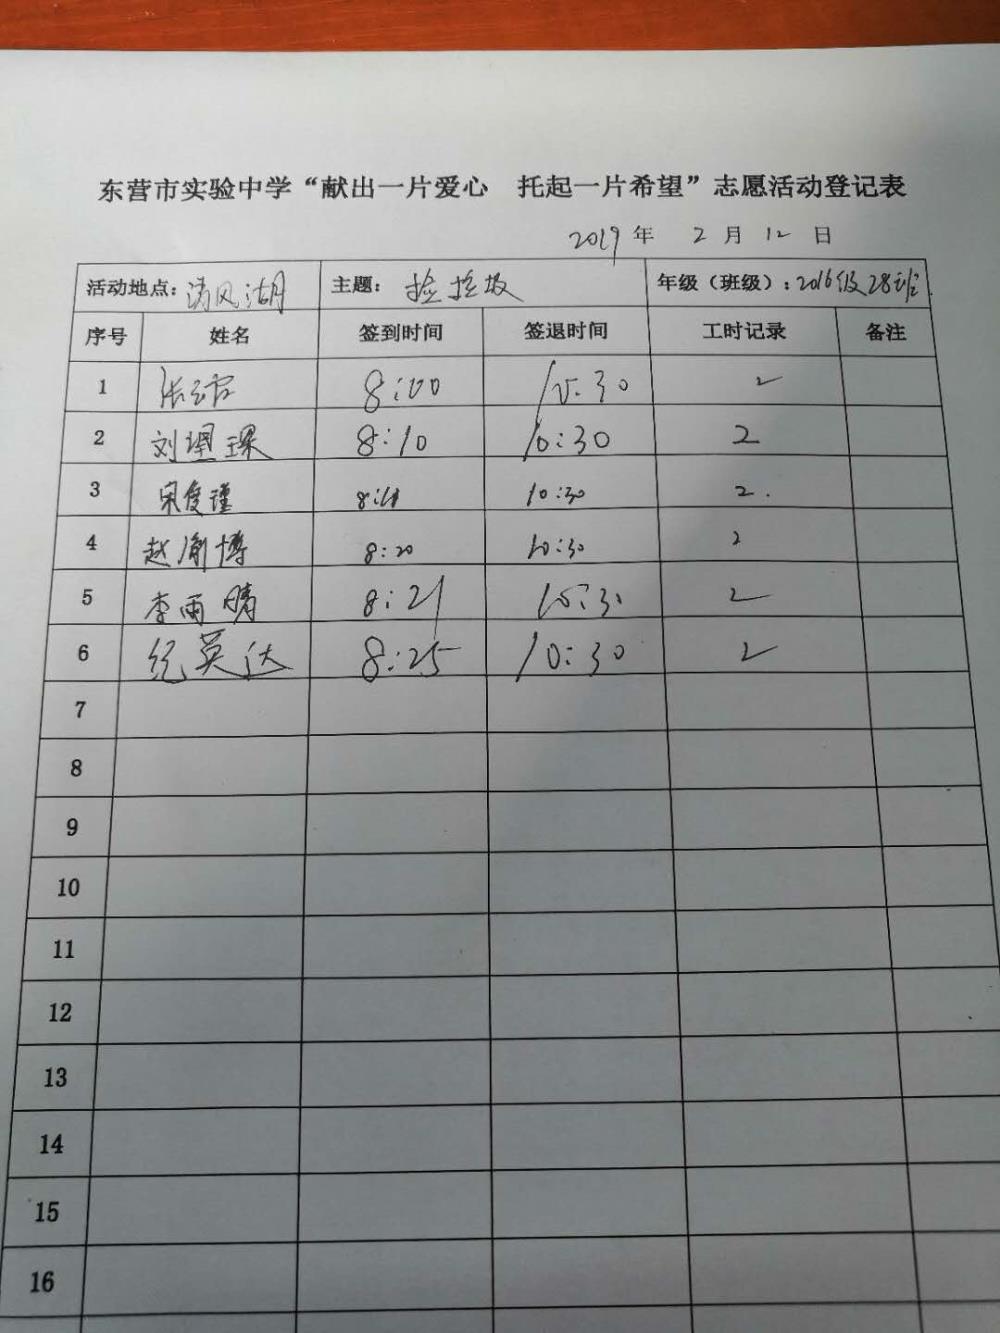 东营市实验中学“献出一片爱心 托起一片希望”志愿活动登记表
2019年 2月 12日
活动地点：清风湖 主题：捡垃圾 年级（班级）：2016级28班
序号 姓名 签到时间 签退时间 工时记录 备注
1 8:00 10:30 2
2 刘 琛 8:10 10:30 2
3 宋俊瑾 8:11 10:30 2.
4 赵 博 8:20 10:30 2
5 李雨晴 8:21 10:30 2
6 纪英达 8:25 10:30 2
7
8
9
10
11
12
13
14
15
16